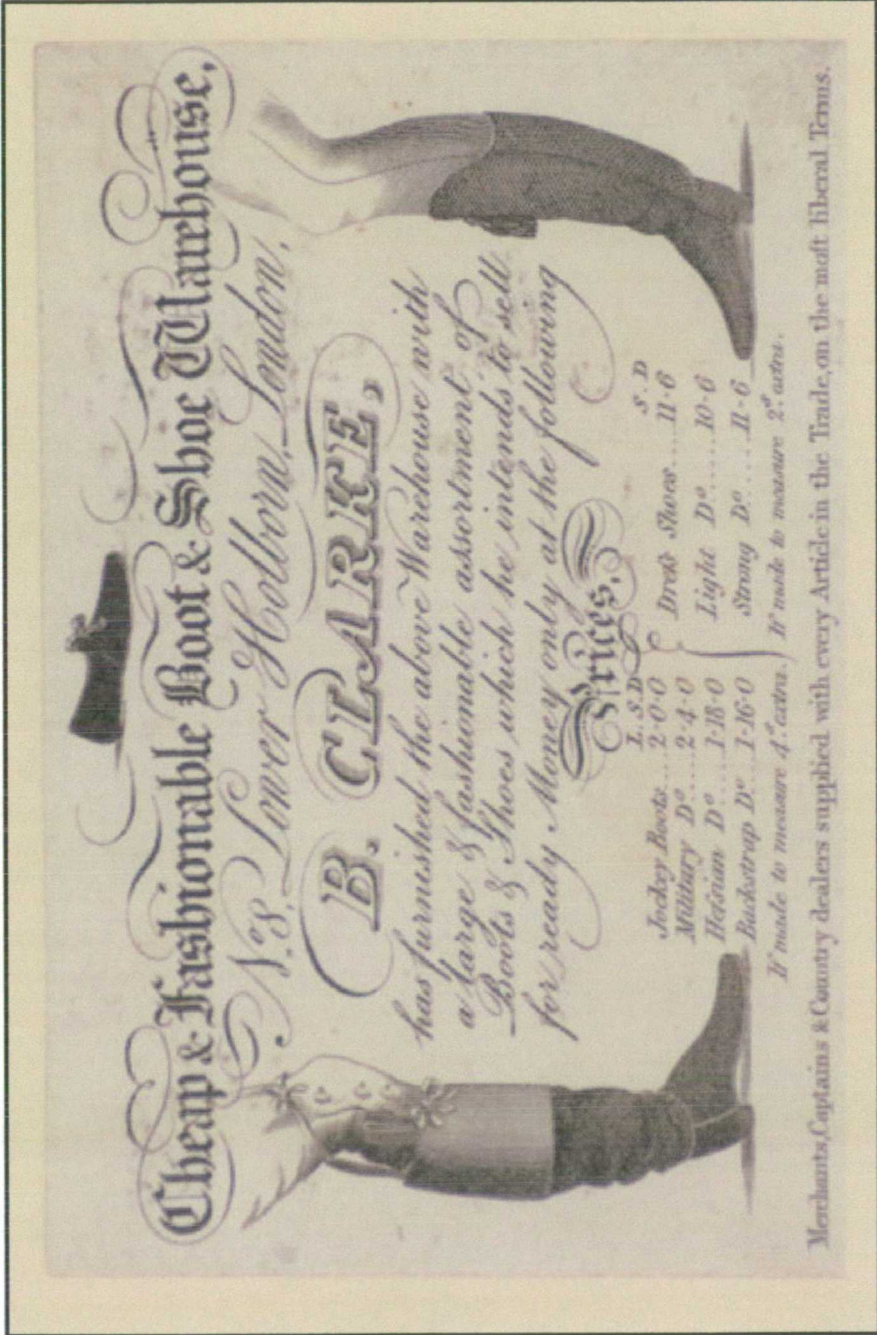 Cheap & Fashionable Boot & Shoe Warehouse,
No. 8, Lower Holborn, London,
B. CLARKE,
has furnished the above Warehouse with
a large & fashionable assortment of
Boots & Shoes which he intends to sell
for ready Money only at the following
Prices,
L. S. D
Jockey Boots.... 2-0-0
Military Do..... 2-4-0
Heſsian Do..... 1-18-0
Backstrap Do... 1-16-0
If made to measure 4s. extra.
S. D
Dreſs Shoes..... 11-6
Light Do...... 10-6
Strong Do..... 11-6
If made to measure 2s. extra.
Merchants, Captains & Country dealers supplied with every Article in the Trade, on the moſt liberal Terms.